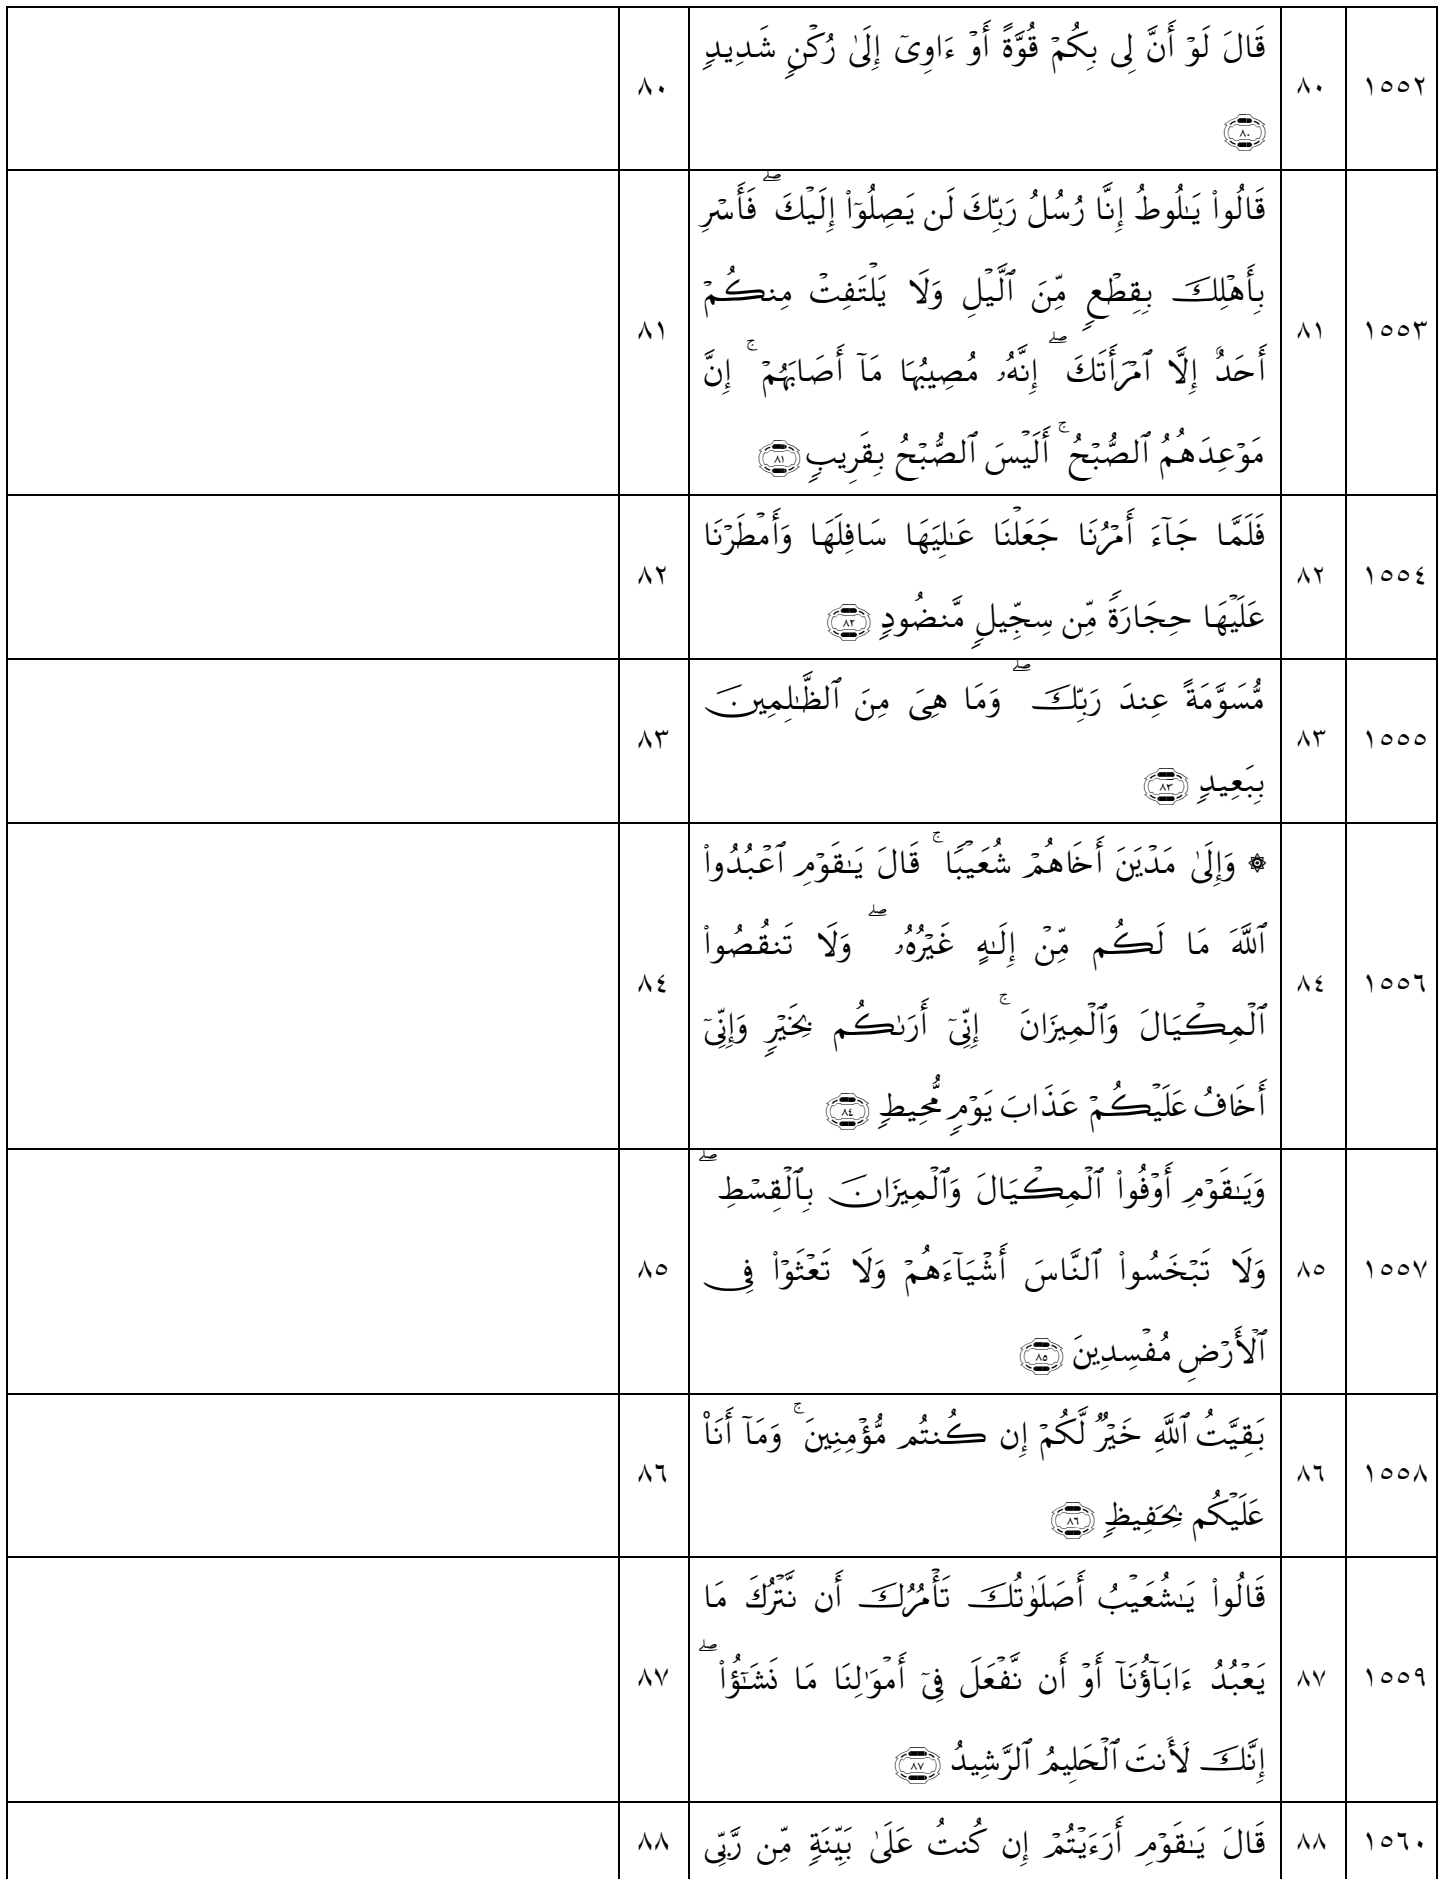 ١٥٥٢ ٨٠ قَالَ لَوۡ أَنَّ لِي بِكُمۡ قُوَّةً أَوۡ ءَاوِيٓ إِلَىٰ رُكۡنٖ شَدِيدٖ ٨٠
٨٠
١٥٥٣ ٨١ قَالُواْ يَٰلُوطُ إِنَّا رُسُلُ رَبِّكَ لَن يَصِلُوٓاْ إِلَيۡكَۖ فَأَسۡرِ ٨١
بِأَهۡلِكَ بِقِطۡعٖ مِّنَ ٱلَّيۡلِ وَلَا يَلۡتَفِتۡ مِنكُمۡ
أَحَدٌ إِلَّا ٱمۡرَأَتَكَۖ إِنَّهُۥ مُصِيبُهَا مَآ أَصَابَهُمۡۚ إِنَّ
مَوۡعِدَهُمُ ٱلصُّبۡحُۚ أَلَيۡسَ ٱلصُّبۡحُ بِقَرِيبٖ ٨١
١٥٥٤ ٨٢ فَلَمَّا جَآءَ أَمۡرُنَا جَعَلۡنَا عَٰلِيَهَا سَافِلَهَا وَأَمۡطَرۡنَا ٨٢
عَلَيۡهَا حِجَارَةٗ مِّن سِجِّيلٖ مَّنضُودٖ ٨٢
١٥٥٥ ٨٣ مُّسَوَّمَةً عِندَ رَبِّكَۖ وَمَا هِيَ مِنَ ٱلظَّٰلِمِينَ ٨٣
بِبَعِيدٖ ٨٣
١٥٥٦ ٨٤ ۞ وَإِلَىٰ مَدۡيَنَ أَخَاهُمۡ شُعَيۡبٗاۚ قَالَ يَٰقَوۡمِ ٱعۡبُدُواْ ٨٤
ٱللَّهَ مَا لَكُم مِّنۡ إِلَٰهٍ غَيۡرُهُۥۖ وَلَا تَنقُصُواْ
ٱلۡمِكۡيَالَ وَٱلۡمِيزَانَۚ إِنِّيٓ أَرَىٰكُم بِخَيۡرٖ وَإِنِّيٓ
أَخَافُ عَلَيۡكُمۡ عَذَابَ يَوۡمٖ مُّحِيطٖ ٨٤
١٥٥٧ ٨٥ وَيَٰقَوۡمِ أَوۡفُواْ ٱلۡمِكۡيَالَ وَٱلۡمِيزَانَ بِٱلۡقِسۡطِۖ ٨٥
وَلَا تَبۡخَسُواْ ٱلنَّاسَ أَشۡيَآءَهُمۡ وَلَا تَعۡثَوۡاْ فِي
ٱلۡأَرۡضِ مُفۡسِدِينَ ٨٥
١٥٥٨ ٨٦ بَقِيَّتُ ٱللَّهِ خَيۡرٞ لَّكُمۡ إِن كُنتُم مُّؤۡمِنِينَۚ وَمَآ أَنَا۠ ٨٦
عَلَيۡكُم بِحَفِيظٖ ٨٦
١٥٥٩ ٨٧ قَالُواْ يَٰشُعَيۡبُ أَصَلَوٰتُكَ تَأۡمُرُكَ أَن نَّتۡرُكَ مَا ٨٧
يَعۡبُدُ ءَابَآؤُنَآ أَوۡ أَن نَّفۡعَلَ فِيٓ أَمۡوَٰلِنَا مَا نَشَٰٓؤُاْۖ
إِنَّكَ لَأَنتَ ٱلۡحَلِيمُ ٱلرَّشِيدُ ٨٧
١٥٦٠ ٨٨ قَالَ يَٰقَوۡمِ أَرَءَيۡتُمۡ إِن كُنتُ عَلَىٰ بَيِّنَةٖ مِّن رَّبِّي ٨٨